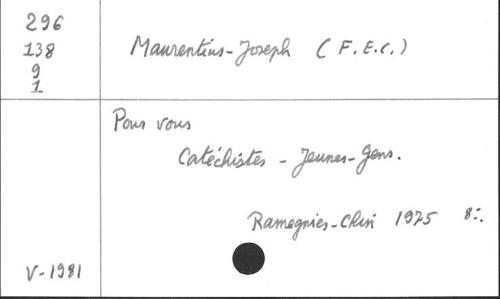 296
138
9
1
Maurentius-Joseph (F.E.C.)
Pour vous
Catéchistes - Jeunes-Gens.
Ramegnies-Chin 1925 8°.
V-1981